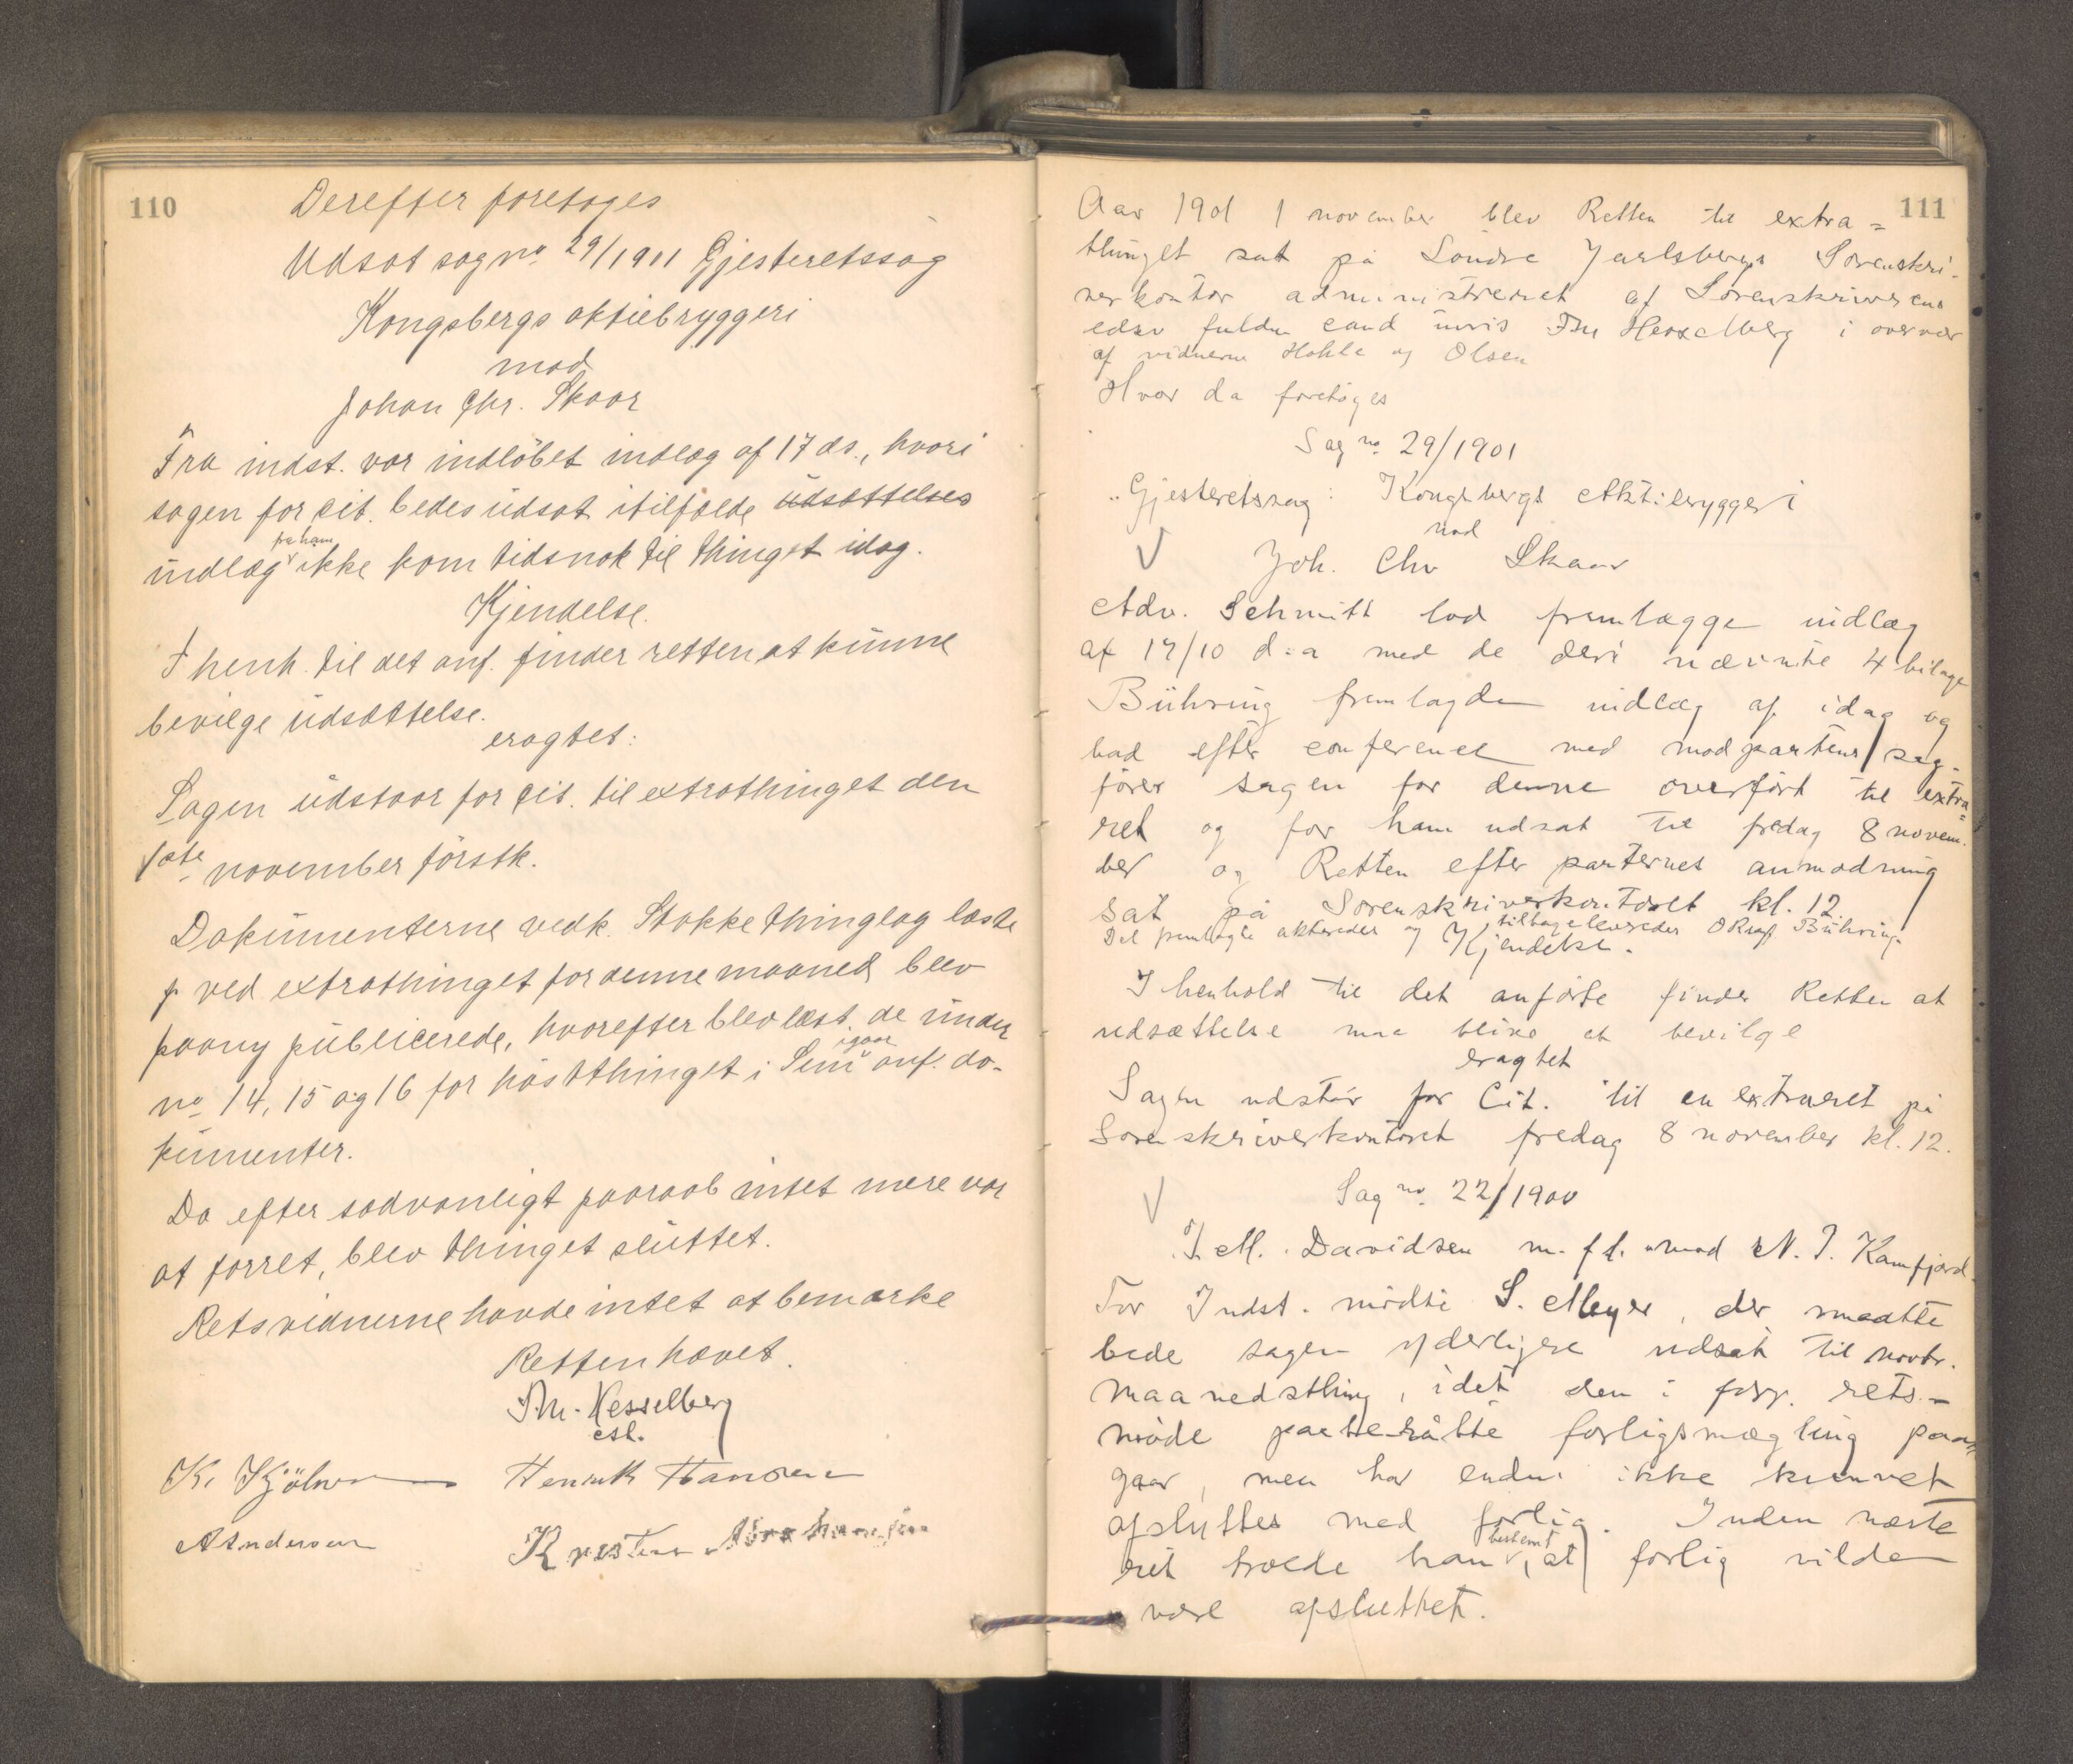 110
Derefter foretoges
Udsat sag no 29/1911 Gjesteretssag
Kongsbergs aktiebryggeri
mod
Johan Chr. Skaar
Fra indst. var indløbet indlæg af 17 ds., hvori
sagen for cit. bedes udsat itilfælde udsættelses
fra ham
indlæg ikke kom tidsnok til thinget idag.
Kjendelse.
I henh. til det anf. finder retten at kunne
bevilge udsættelse.
eragtet:
Sagen udstaar for cit. til extrathinget den
1ste november førstk.
Dokumenterne vedk. Stokke thinglag læste
ved extrathinget for denne maaned blev
paany publicerede, hvorefter blev læst de under
igaar
no 14, 15 og 16 for høstthinget i Sem anf. do-
kumenter.
Da efter sædvanligt paaraab intet mere var
at forret, blev thinget sluttet.
Retsvidnerne havde intet at bemærke
Retten hævet.
Th. Hesselberg
est.
K. Kjølner Henrik Hansen
A Andersen Kristian Abrahamsen
111
Aar 1901 1 november blev Retten til extra=
thinget sat på Søndre Jarlsbergs Sorenskri-
verkontor administreret af Sorenskriverens
edsv fuldm cand iuris Th Hesselberg i overvær
af vidnerne Hohle og Olsen
Hvor da foretoges
Sag no. 29/1901
Gjesteretssag: Kongsbergs Aktiebryggeri
mod
Joh. Chr Skaar
Adv. Schmitt lod fremlægge indlæg
af 17/10 d:a med de deri nævnte 4 bilage
Bühring fremlagde indlæg af idag og
bad efter conference med modpartens sag-
fører sagen for denne overført til extra=
ret og for ham udsat til fredag 8 novem-
ber og Retten efter parternes anmodning
sat på Sorenskriverkontoret kl. 12
Det fremlagte akteredes og tilbageleveredes ORsagf Bühring.
Kjendelse.
I henhold til det anførte finder Retten at
udsættelse maa blive at bevilge
eragtet
Sagen udstår for Cit. til en extraret på
Sorenskriverkontoret fredag 8 november kl. 12.
Sag no. 22/1900
J. M. Davidsen m. fl. mod N. J. Kamfjord.
For Indst. mødte S. Meyer, der maatte
bede sagen yderligere udsat til novbr.
maanedsthing, idet den i forr. rets-
møde paaberåbte forligsmægling paa-
gaar, men har endnu ikke kunnet
afsluttes med forlig. Inden næste
bestemt
ret troede han, at forlig vilde
være afsluttet.